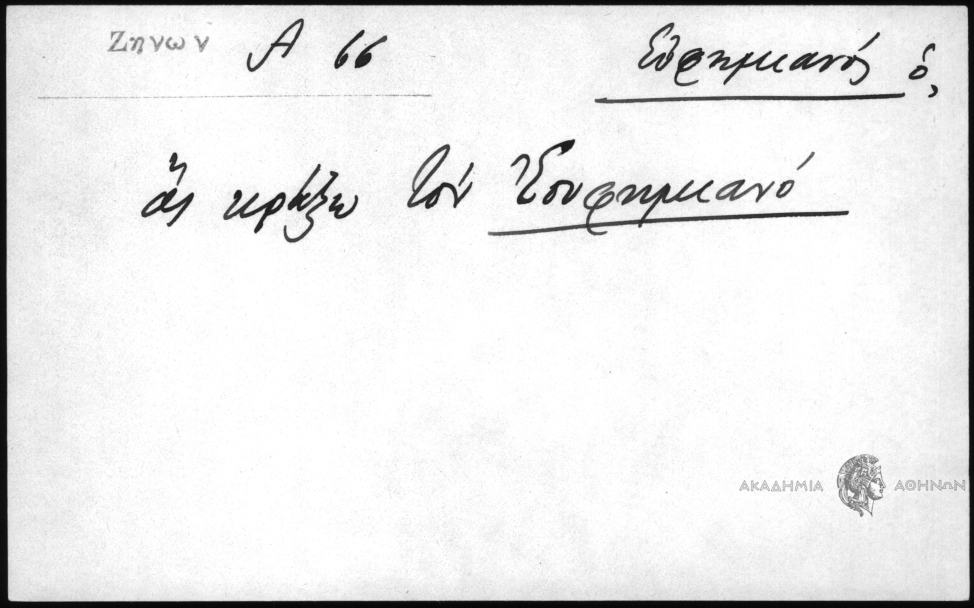 Ζηνων Α 66 Εὐφημιανός ὁ,
ἄς κράξω τόν Ἐουφημιανό
ΑΚΑΔΗΜΙΑ ΑΘΗΝΩΝ